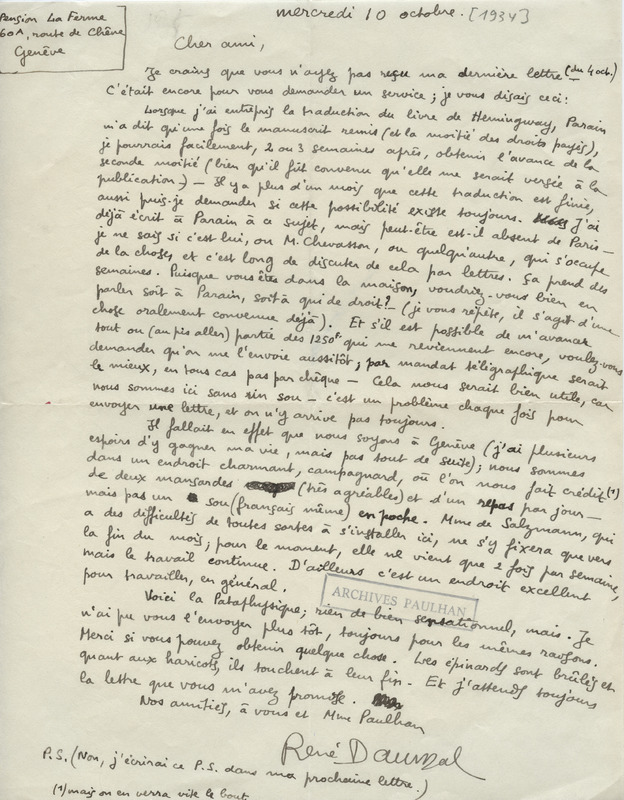 Pension La Ferme
60A, route de Chêne
Genève
mercredi 10 octobre. [1934]
Cher ami,
Je crains que vous n'ayez pas reçu ma dernière lettre (du 4 oct.)
C'était encore pour vous demander un service ; je vous disais ceci :
Lorsque j'ai entrepris la traduction du livre de Hemingway, Parain
m'a dit qu'une fois le manuscrit remis (et la moitié des droits payés),
je pourrais facilement, 2 ou 3 semaines après, obtenir l'avance de la
seconde moitié (bien qu'il fût convenu qu'elle me serait versée à la
publication.) — Il y a plus d'un mois que cette traduction est finie,
aussi puis-je demander si cette possibilité existe toujours. J'ai
déjà écrit à Parain à ce sujet, mais peut-être est-il absent de Paris —
je ne sais si c'est lui, ou M. Chevasson, ou quelqu'autre, qui s'occupe
de la chose, et c'est long de discuter de cela par lettres. Ça prend des
semaines. Puisque vous êtes dans la maison, voudriez-vous bien en
parler soit à Parain, soit à qui de droit ? — (je vous répète, il s'agit d'une
chose oralement convenue déjà). Et s'il est possible de m'avancer
tout ou (au pis aller) partie des 1250fr qui me reviennent encore, voulez-vous
demander qu'on me l'envoie aussitôt ; par mandat télégraphique serait
le mieux, en tous cas pas par chèque — Cela nous serait bien utile, car
nous sommes ici sans un sou — c'est un problème chaque fois pour
envoyer une lettre, et on n'y arrive pas toujours.
Il fallait en effet que nous soyons à Genève (j'ai plusieurs
espoirs d'y gagner ma vie, mais pas tout de suite) ; nous sommes
dans un endroit charmant, campagnard, où l'on nous fait crédit (1)
de deux mansardes (très agréables) et d'un repas par jour —
mais pas un sou (français même) en poche. Mme de Salzmann, qui
a des difficultés de toutes sortes à s'installer ici, ne s'y fixera que vers
la fin du mois ; pour le moment, elle ne vient que 2 fois par semaine,
mais le travail continue. D'ailleurs c'est un endroit excellent
pour travailler, en général.
ARCHIVES PAULHAN
Voici la Pataphysique ; rien de bien sensationnel, mais. Je
n'ai pu vous l'envoyer plus tôt, toujours pour les mêmes raisons.
Merci si vous pouvez obtenir quelque chose. Les épinards sont brûlés et
quant aux haricots, ils touchent à leur fin. Et j'attends toujours
la lettre que vous m'avez promise.
Nos amitiés, à vous et Mme Paulhan
René Daumal
P.S. (Non, j'écrirai ce P.S. dans ma prochaine lettre.)
(1) mais on en verra vite le bout.